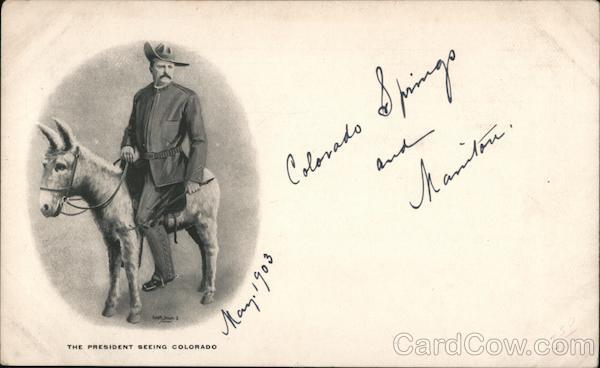 Colorado Springs
and
Manitou.
May. 1903
THE PRESIDENT SEEING COLORADO
CardCow.com